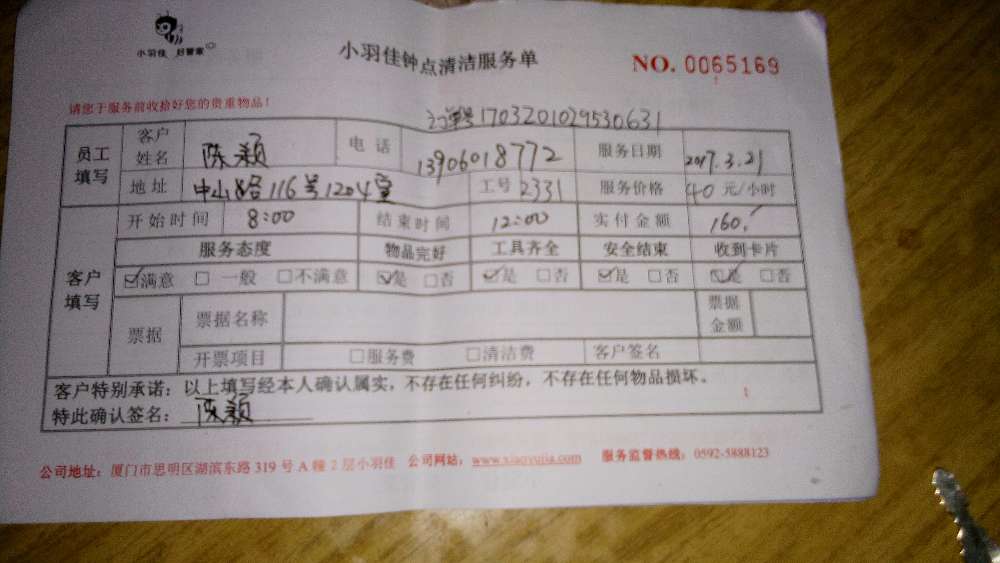 小羽佳 好管家
小羽佳钟点清洁服务单
NO. 0065169
请您于服务前收拾好您的贵重物品！
订单号1703201029530631
员工填写 客户姓名 陈颖 电话 13906018772 服务日期 2017.3.21
地址 中山路116号1204室 工号 2331 服务价格 40元/小时
客户填写 开始时间 8:00 结束时间 12:00 实付金额 160.
服务态度 物品完好 工具齐全 安全结束 收到卡片
☑满意 □一般 □不满意 ☑是 □否 ☑是 □否 ☑是 □否 ☑是 □否
票据 票据名称 票据金额
开票项目 □服务费 □清洁费 客户签名
客户特别承诺：以上填写经本人确认属实，不存在任何纠纷，不存在任何物品损坏。
特此确认签名：陈颖
公司地址：厦门市思明区湖滨东路 319 号 A 幢 2 层小羽佳 公司网站：www.xiaoyujia.com 服务监督热线：0592-5888123